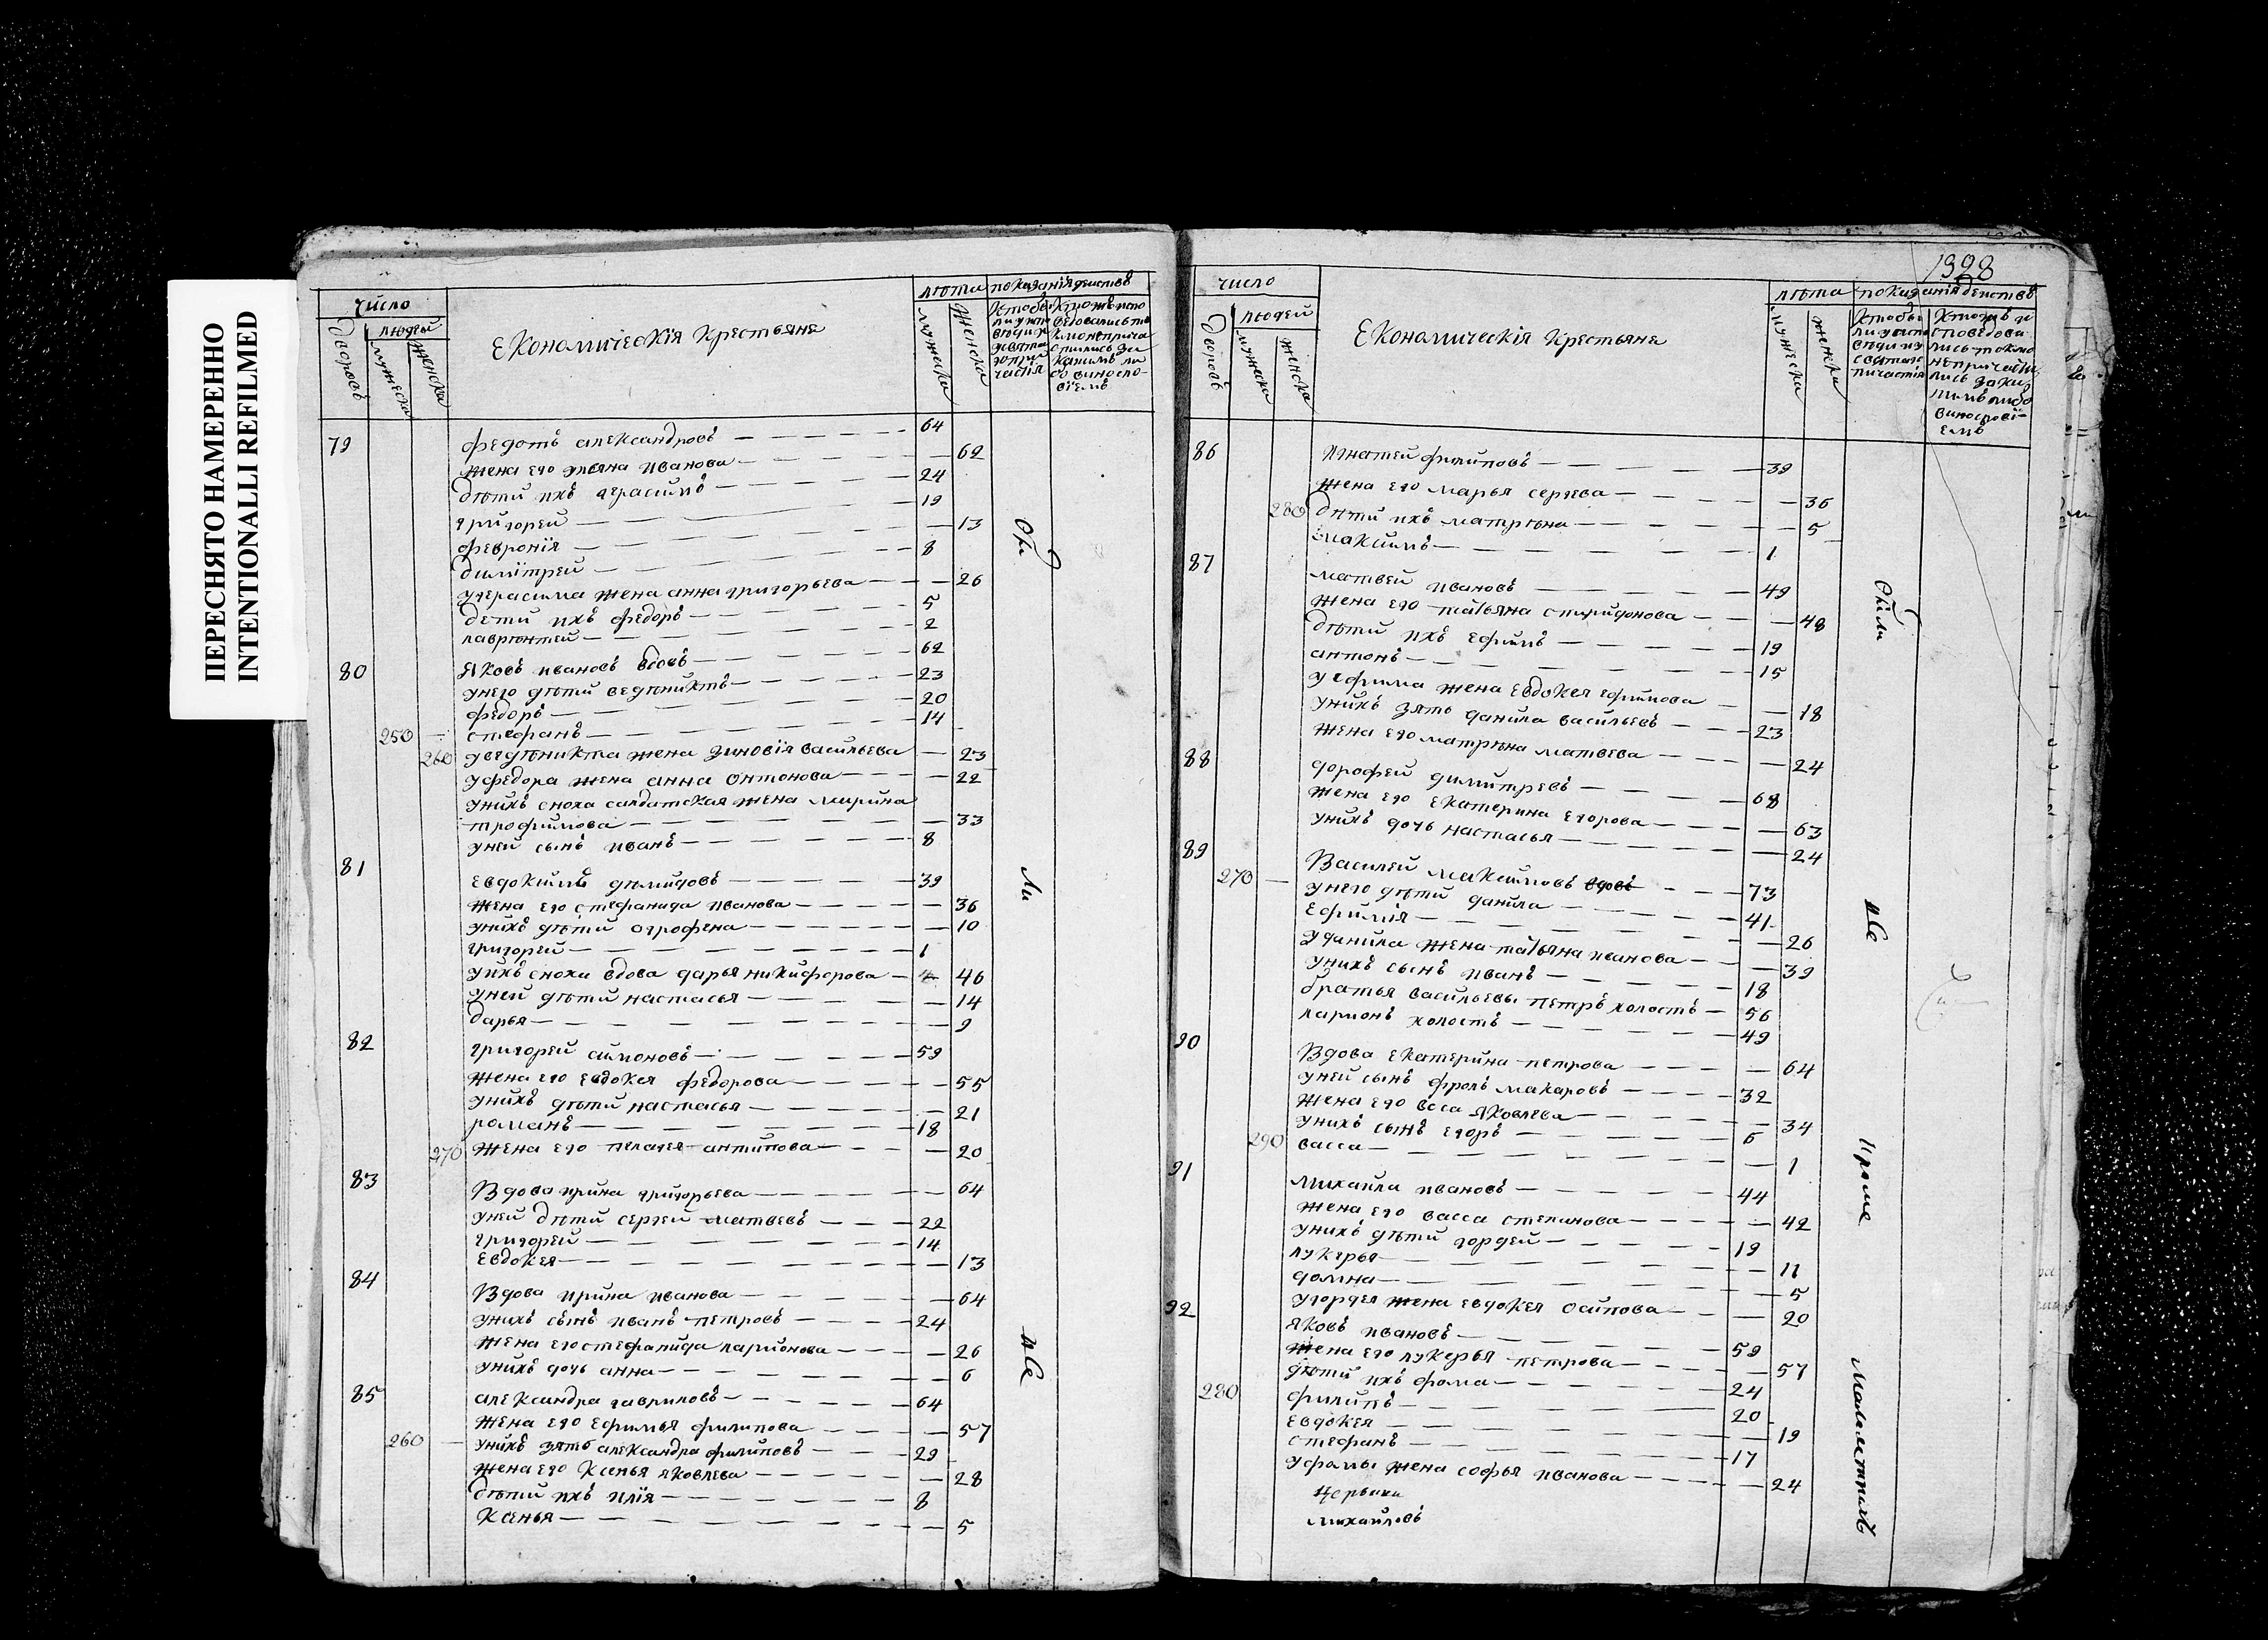 ПЕРЕСНЯТО НАМЕРЕННО
INTENTIONALLI REFILMED
число
людей
дворовъ
мужеска
женска
Економическїя крестьяне
лѣта
мужеска
женска
показанїя действъ
79 федотъ александровъ 64
жена его ульяна иванова 62
дѣти ихъ герасимъ 24
григорей 19
феронїя 13
димитрей 8
угерасима жена анна григорьева 26
дети ихъ федоръ 5
лаврѣнтей 2
80 яковъ ивановъ вдовъ 62
унего дѣти ведѣниктъ 23
федоръ 20
250 стефанъ 14
260 уведѣникта жена зиновїя васильева 23
уфедора жена анна онтонова 22
унихъ сноха салдатская жена марина
трофимова 33
уней сынъ иванъ 8
81 евдокимъ дѣмидовъ 39
жена его стефанида иванова 36
унихъ дѣти огрофена 10
григорей 1
унихъ сноха вдова дарья никифорова 46
уней дѣти настасья 14
дарья 9
82 григорей симоновъ 59
жена его евдокея федорова 55
унихъ дѣти настасья 21
романъ 18
270 жена его пелагея антипова 20
83 Вдова ирина григорьева 64
уней дѣти сергей матвеевъ 22
григорей 14
евдокея 13
84 Вдова ирина иванова 64
унихъ сынъ иванъ петровъ 24
жена его стефанида ларионова 26
унихъ дочь анна 6
85 александра гавриловъ 64
жена его ефимья филипова 57
260 унихъ зять александра филиповъ 29
жена его ксенья яковлева 28
дѣти ихъ илїя 8
ксенья 5
Бы
ли
все
1328
число
людей
дворовъ
мужеска
женска
Економическїя крестьяне
лѣта
мужеска
женска
показанїя действъ
86 игнатей филиповъ 39
жена его марья сергева 36
280 дѣти ихъ матрѣна 5
максимъ 1
87 матвей ивановъ 49
жена его татьяна спиридонова 48
дѣти ихъ ефимъ 19
антонъ 15
уефима жена евдокея ефимова 18
унихъ зять данила васильевъ 23
жена его матрѣна матвева 24
88 дорофей димитревъ 68
жена его екатерина егорова 63
унихъ дочь настасья 24
89 Василей максимовъ вдовъ 73
270 унего дѣти данила 41
ефимїя 26
уданила жена татьяна иванова 39
унихъ сынъ иванъ 18
братья васильевы петръ холостъ 56
ларионъ холостъ 49
90 Вдова екатерина петрова 64
уней сынъ фролъ макаровъ 32
жена его васа яковлева 34
унихъ сынъ егоръ 6
290 васса 1
91 михаила ивановъ 44
жена его васса степанова 42
унихъ дѣти гордей 19
лукерья 11
домна 5
угордея жена евдокея осипова 20
92 яковъ ивановъ 59
жена его лукерья петрова 57
дѣти ихъ фома 24
280 филипъ 20
евдокея 19
стефанъ 17
уфомы жена софья иванова 24
михайловъ
были
все
кроме
малолетныхъ